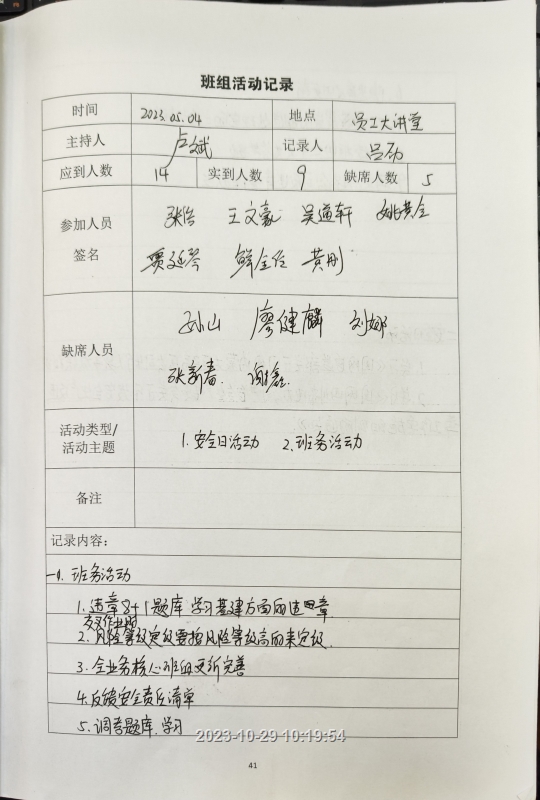 班组活动记录
时间 2023.05.04 地点 员工大讲堂
主持人 卢斌 记录人 吕劲
应到人数 14 实到人数 9 缺席人数 5
参加人员 张浩 王文豪 吴道轩
签名 贾延琴 鲜全位 黄刚
孙山 廖健麟 刘娜
缺席人员
张新春 谢鑫
活动类型/ 1.安全日活动 2.班务活动
活动主题
备注
记录内容:
一、班务活动
1.违章8+1题库 学习基建方面的违章
交叉作业时
2.风险等级定级要按风险等级高的来定级.
3.全业务核心班组更新完善
4.反馈安全责任清单
5.调考题库.学习
2023-10-29 10:19:54
41